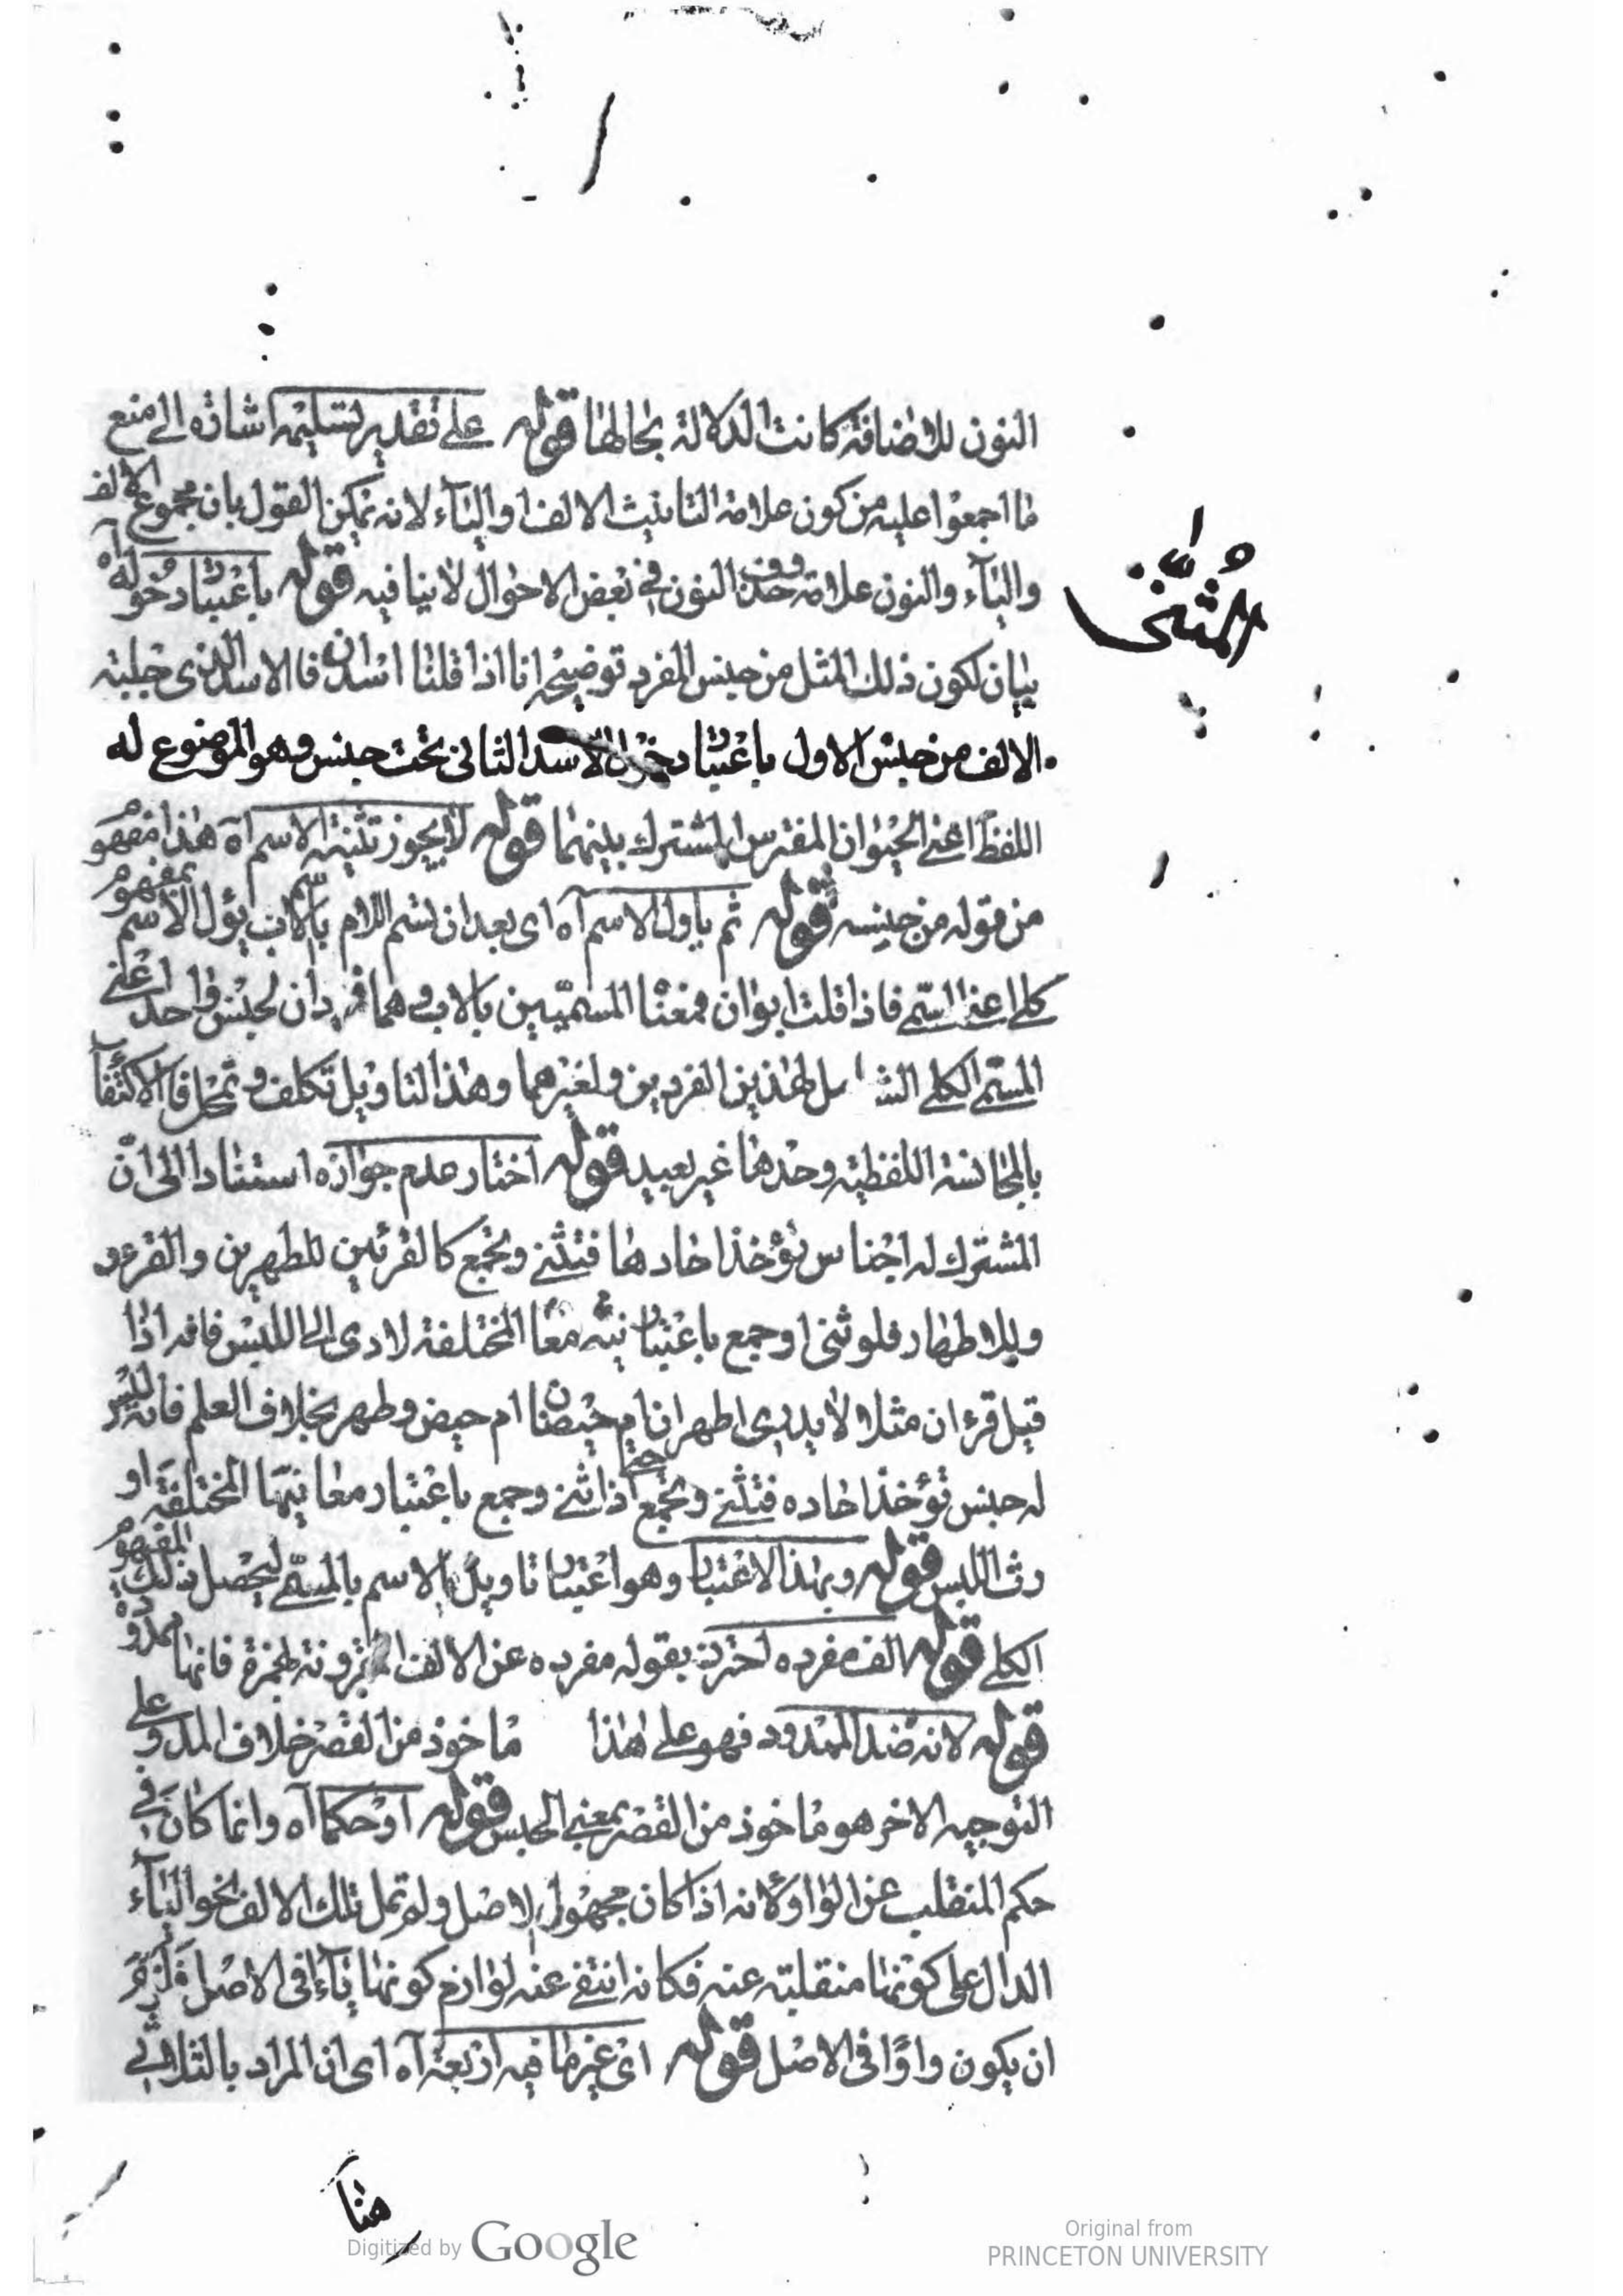 النون للاضافة كانت الدلالة بحالها قوله على تقدير تسليمه اشارة الى منع
ما اجمعوا عليه من كون علامة التانيث الالف او الياء لانه يمكن القول بان مجموع الالف
والياء والنون علامة وحذف النون في بعض الاحوال لا ينافيه قوله باعتبار دخوله آه
المثنى
بيان لكون ذلك المثل من جنس المفرد توضيحه انا اذا قلنا اسدان فالاسد الذي جلبته
الالف من جنس الاول باعتبار دخول الاسد الثاني تحت جنس وهو الموضوع له
اللفظ اعني الحيوان المفترس المشترك بينهما قوله لا يجوز تثنية الاسم آه هذا مفهوم
من قوله من جنسه قوله ثم ياول الاسم آه اى بعد ان سمى الام بالاب يؤل الاسم بمفهوم
كلى اعنى المسمى فاذا قلت ابوان فمعناه المسميين بالاب وهما فردان لجنس واحد اعنى
المسمى الكلى الشامل لهذين الفردين ولغيرهما وهذا التاويل تكلف وتمحل فالاكتفآ
بالمجانسة اللفظية وحدها غير بعيد قوله اختار عدم جوازه استنادا الى ان
المشترك له اجناس يؤخذ احادها فتثنى وتجمع كالقرئين للطهرين والقروء
وللاطهار فلو ثنى او جمع باعتبار معانيه المختلفة لادى الى اللبس فانه اذا
قيل قرءان مثلا لا يدرى اطهران ام حيضان ام حيض وطهر بخلاف العلم فانه ليس
له جنس تؤخذ احاده فتثنى وتجمع حتى اذا ثنى وجمع باعتبار معانيها المختلفة او
رث اللبس قوله وبهذا الاعتبار وهو اعتبار تاويل الاسم بالمسمى ليحصل بذلك المفهوم
الكلى قوله الف مفرده احترز بقوله مفرده عن الالف المقرونة بهمزة فانها ممدودة
قوله لانه ضد الممدود فهو على هذا ماخوذ من القصر خلاف المد وعلى
التوجيه الاخر هو ماخوذ من القصر بمعنى الحبس قوله او حكما آه وانما كان فى
حكم المنقلب عن الواو لانه اذا كان مجهول الاصل ولم تمل تلك الالف نحو الياء
الدال على كونها منقلبة عنه فكانه انتفى عنه لوازم كونها ياء فى الاصل فلزم
ان يكون واوًا فى الاصل قوله اى غير ما فيه اربعة آه اى ان المراد بالثلاثى
هنا
Digitized by Google
Original from
PRINCETON UNIVERSITY